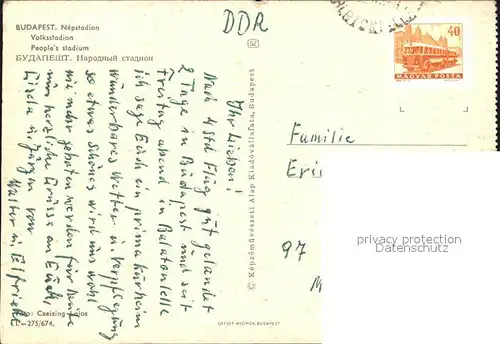 BUDAPEST. Népstadion
Volksstadion
People's stadium
БУДАПЕШТ. Народный стадион
DDR
52
40
MAGYAR POSTA
Ihr Lieben!
Nach 4 Std Flug gut gelandet
2 Tage in Budapest und seit
Freitag abend in Balatonlelle
ich sage Euch ein prima Kurheim
wunderbares Wetter u. Verpflegung
so etwas schönes wird uns wohl
nie mehr geboten werden für heute
nun herzliche Grüsse an Euch,
u. Jürgen von
Walter u. Elfriede
© Képzőművészeti Alap Kiadóvállalata, Budapest
Familie
Eri
97
M
privacy protection
watermark
Czeizing Lajos
-275/674.
OFFSET-NYOMDA BUDAPEST